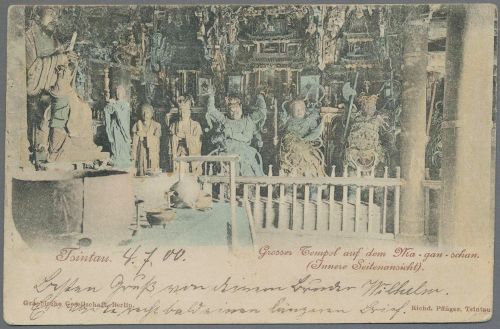 Tsintau. 4. 7. 00.
Grosser Tempel auf dem Ma-gan-schan.
(Innere Seitenansicht).
Besten Gruß von deinem Bruder Wilhelm.
Graphische Gesellschaft, Berlin.
recht bald einen längeren Brief.
Richd. Pflüger, Tsintau